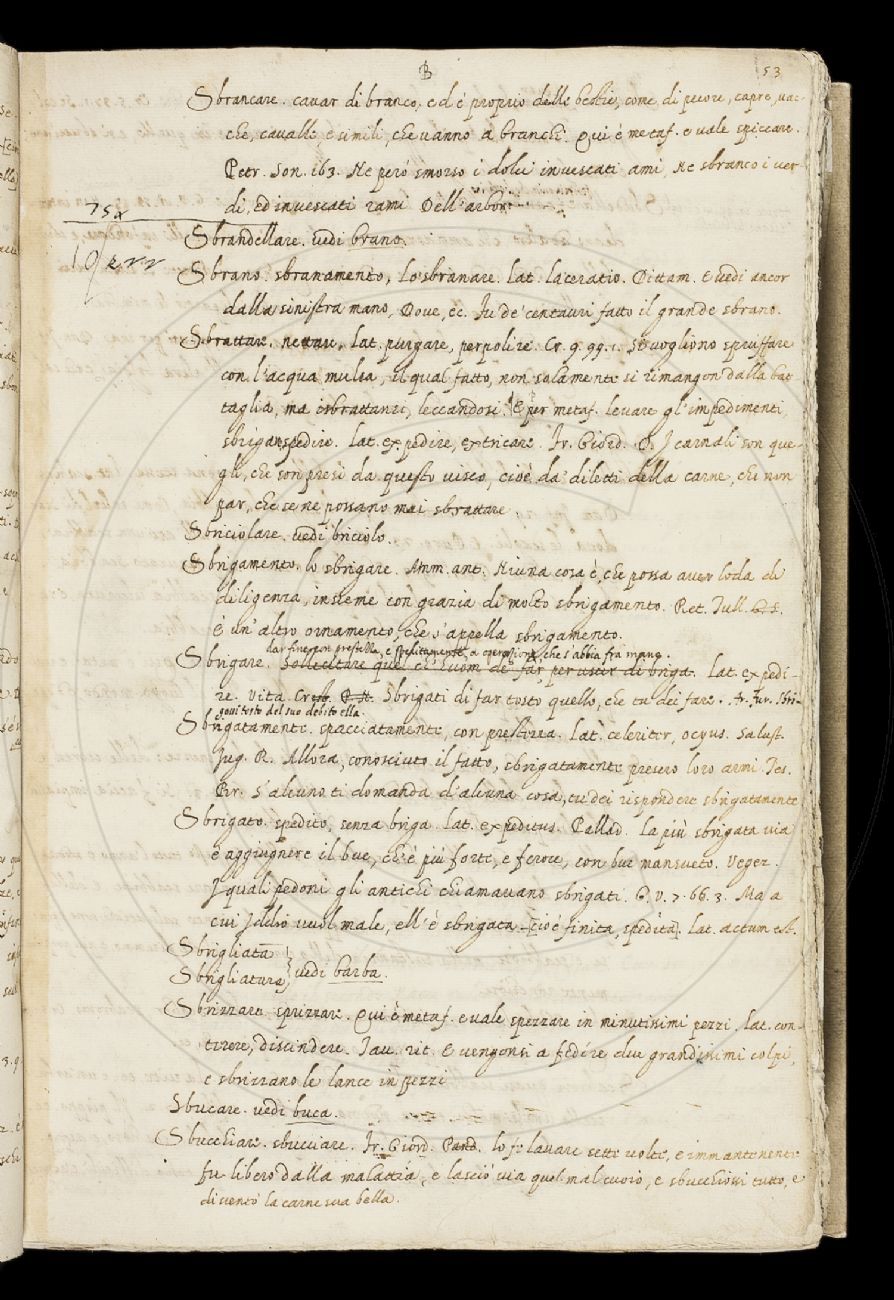 B
53
Sbrancare. cavar di branco, ed è proprio delle bestie, come di pecore, capre, vac-
che, cavalle, e simili, che vanno a branchi. Qui è metaf. e vale spiccare.
Petr. Son. 163. Ne però smorso i dolci invescati ami, Ne sbranco i ver-
di, ed invescati rami Dell'arbor
Sbrandellare. vedi brano.
Sbrano. sbranamento, lo sbranare. Lat. laceratio. Dittam. E vedi ancor
dalla sinistra mano, Dove, ec. Fu de' centauri fatto il grande sbrano.
Sbrattare. nettare. Lat. purgare, perpolire. Cr. 9. 99. 1. Si vogliono spruffare
con l'acqua mulsa, il qual fatto, non solamente si rimangon dalla bat-
taglia, ma isbrattansi, leccandosi. E per metaf. levare gl'impedimenti,
sbrigare, spedire. Lat. expedire, extricare. Fr. Giord. D. I carnali son que-
gli, che son presi da questo visco, cioè da' diletti della carne, che non
par, che se ne possano mai sbrattare.
Sbriciolare. vedi briciolo.
Sbrigamento. lo sbrigare. Amm. ant. Niuna cosa è, che possa aver loda di
diligenza, insieme con grazia di molto sbrigamento. Ret. Tull.
È un'altro ornamento, che s'appella sbrigamento.
dar fine con prestezza, e speditamente a operazione, che s'abbia fra mano.
Sbrigare. Sollecitare quel ch'huom de' far per uscir di briga. Lat. expedi-
re. Vita Crist. Sbrigati di far tosto quello, che tu dei fare. Fr. Jac. Sbri-
goui tosto del suo debito ella.
Sbrigatamente. spacciatamente, con prestezza. Lat. celeriter, ocyus. Salust.
Jug. R. Allora, conosciuto il fatto, sbrigatamente presero loro armi. Tes.
Br. S'alcuno ti domanda d'alcuna cosa, tu dei rispondere sbrigatamente
Sbrigato. spedito, senza briga. Lat. expeditus. Pallad. La più sbrigata via
è aggiugnere il bue, ch'è più forte, e feroce, con bue mansueto. Veget.
I quali pedoni gli antichi chiamavano sbrigati. G. V. 7. 66. 3. Ma a
cui Iddio vuol male, ell'è sbrigata [cioè finita, spedita]. Lat. actum est.
Sbrigliata
Sbrigliatura vedi barba.
Sbrizzare. sprizzare. Qui è metaf. e vale spezzare in minutissimi pezzi. Lat. con-
terere, discindere. Tav. rit. E vengonsi a fedire due grandissimi colpi,
e sbrizzano le lance in pezzi
Sbucare. vedi buca.
Sbucchiare. sbucciare. Fr. Giord. Pand. lo fe lavare sette volte, e immantenente
fu libero dalla malattia, e lasciò via quel mal cuoio, e sbucchiossi tutto, e
diventò la carne sua bella.